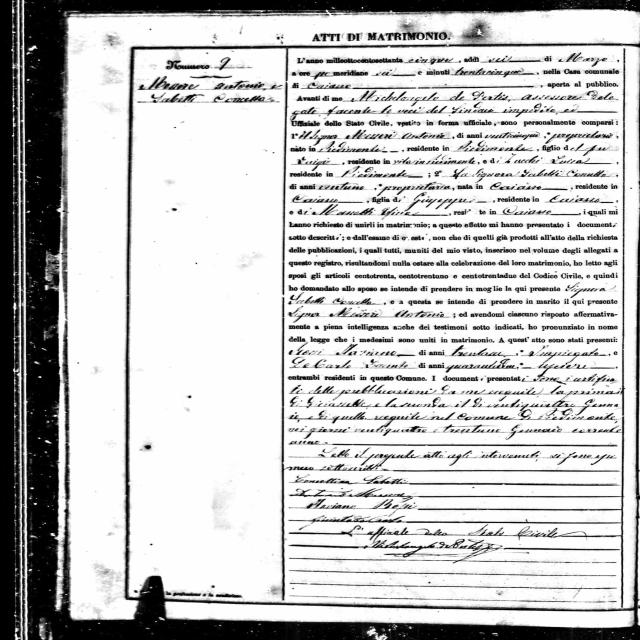 ATTI DI MATRIMONIO.
Numero 9
Messeri Antonio e
Sabetti Concetta
L'anno milleottocentosettanta cinque, addì sei di Marzo,
a ore meridiane sei e minuti trentacinque, nella Casa comunale
di Caiazzo aperta al pubblico.
Avanti di me Michelangelo de assessore dele
gato facente le veci del Sindaco impedito
Uffiziale dello Stato Civile, vestito in forma ufficiale, sono personalmente comparsi:
1° Il Signor Messeri Antonio, di anni proprietario,
nato in Piedimonte, residente in Piedimonte, figlio del fu
Luigi, residente in vita in Piedimonte, e di Lucia
residente in Piedimonte; 2° La Signora Sabetti Concetta
di anni ventuno proprietaria, nata in Caiazzo, residente in
Caiazzo, figlia di Giuseppe, residente in Caiazzo,
e di residente in Caiazzo, i quali mi
hanno richiesto di unirli in matrimonio; a questo effetto mi hanno presentato i documenti
sotto descritti; e dall'esame di questi, non che di quelli già prodotti all'atto della richiesta
delle pubblicazioni, i quali tutti, muniti del mio visto, inserisco nel volume degli allegati a
questo registro, risultandomi nulla ostare alla celebrazione del loro matrimonio, ho letto agli
sposi gli articoli centotrenta, centotrentuno e centotrentadue del Codice Civile, e quindi
ho domandato allo sposo se intende di prendere in moglie la qui presente Signora
Sabetti Concetta, e a questa se intende di prendere in marito il qui presente
Signor Messeri Antonio; ed avendomi ciascuno risposto affermativamente
a piena intelligenza anche dei testimoni sotto indicati, ho pronunziato in nome
della legge che i medesimi sono uniti in matrimonio. A quest'atto sono stati presenti:
di anni impiegato e
De Carlo di anni quarantuno
entrambi residenti in questo Comune. I documenti presentati sono i certifica
ti delle pubblicazioni da me eseguite la prima il
dì e la seconda il dì ventiquattro Genna
io, e di quelle eseguite nel Comune di Piedimonte
nei giorni ventiquattro e trentuno Gennaio corrente
anno.
Letto il presente atto agli intervenuti, si sono qui
meco sottoscritti.
Concettina Sabetti
Antonio
Mariano Rossi
L'uffiziale dello Stato Civile
Michelangelo de